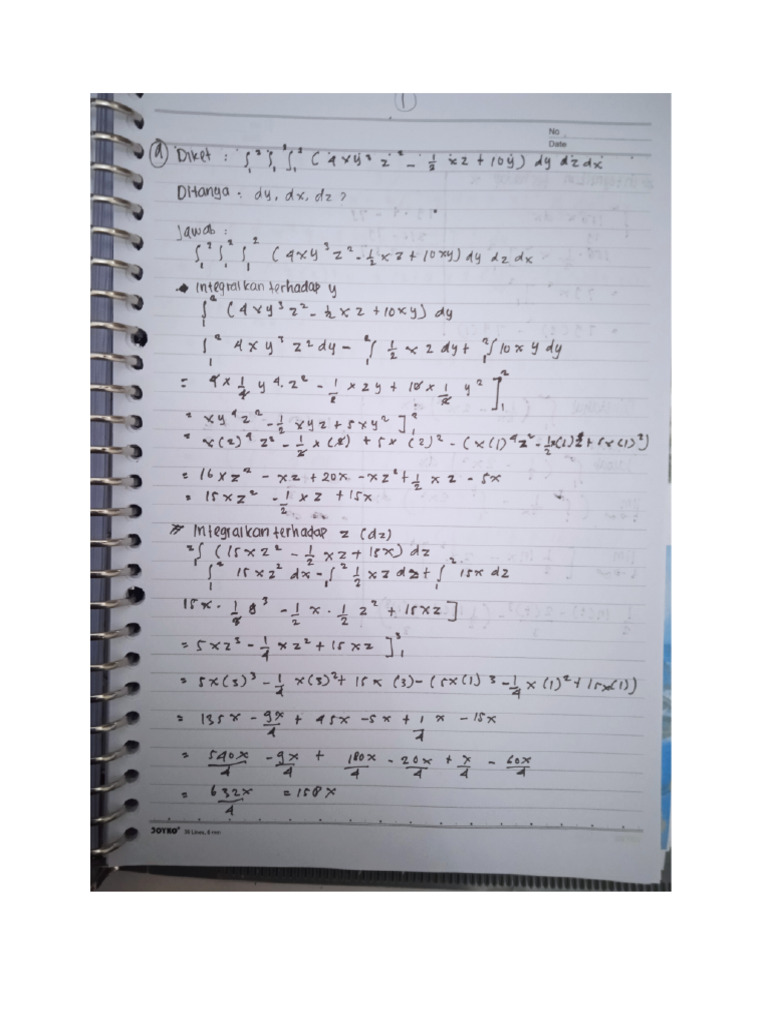 1
No
Date
a Diket : ∫₁³ ∫₁³ ∫₁² (4xy³z² - 1/3 xz + 10y) dy dz dx
Ditanga : dy, dx, dz ?
Jawab :
∫₁³ ∫₁² ∫₁² (4xy³z² - 1/2 xz + 10xy) dy dz dx
• Integralkan terhadap y
∫₁² (4xy³z² - 1/2 xz + 10xy) dy
∫₁² 4xy³z² dy - ∫₁² 1/2 xz dy + ∫₁² 10xy dy
= 4x 1/4 y⁴. z² - 1/2 xzy + 10x 1/2 y² ]₁²
= xy⁴z² - 1/2 xyz + 5xy² ]₁²
= x(2)⁴z² - 1/2 x(2) + 5x(2)² - (x(1)⁴z² - 1/2 x(1)z + 5x(1)²)
= 16xz² - xz + 20x - xz² + 1/2 xz - 5x
= 15xz² - 1/2 xz + 15x
# Integralkan terhadap z (dz)
∫₁² (15xz² - 1/2 xz + 15x) dz
∫₁² 15xz² dx - ∫₁² 1/2 xz dz + ∫₁² 15x dz
15x . 1/3 8³ - 1/2 x . 1/2 z² + 15xz ]
= 5xz³ - 1/4 xz² + 15xz ]₁³
= 5x(3)³ - 1/4 x(3)² + 15x (3) - (5x(1)³ - 1/4 x(1)² + 15x(1))
= 135x - 9x/4 + 45x - 5x + 1/4 x - 15x
= 540x/4 - 9x/4 + 180x/4 - 20x/4 + x/4 - 60x/4
= 632x/4 = 158x
JOYKO 26 Lines, 8 mm